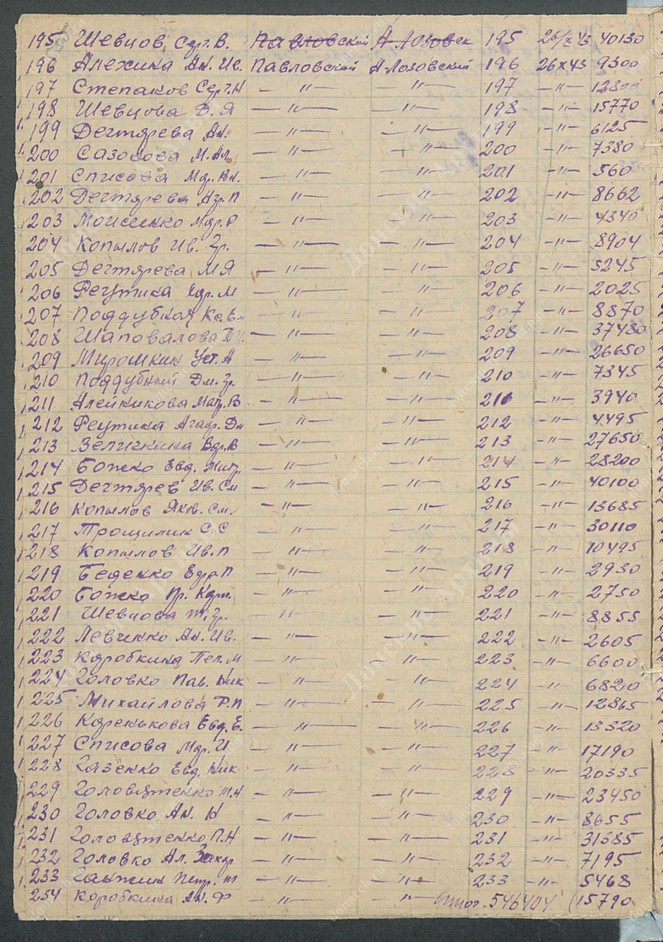 195 Шевцов Сер. В. Павловский А Лозовск 195 26/X 43 40130
196 Алехина Ан. Ив. Павловской А-Лозовский 196 26 X 43 9300
197 Степанов Сер. Н — " — — " — 197 — " — 12800
198 Шевцова Д. Я — " — — " — 198 — " — 15770
199 Дегтярева Ан. — " — — " — 199 — " — 6125
200 Сазонова М. Ал. — " — — " — 200 — " — 7380
201 Списова Мар. Вл. — " — — " — 201 — " — 560
202 Дегтярева П — " — — " — 202 — " — 8662
203 Моисеенко Мар. Р — " — — " — 203 — " — 4340
204 Копылов Ив. Гр. — " — — " — 204 — " — 8904
205 Дегтярева М Я — " — — " — 205 — " — 3245
206 Реутина М — " — — " — 206 — " — 2025
207 Поддубная — " — — " — 207 — " — 8870
208 Шаповалова — " — — " — 208 — " — 37430
209 Мирошкин Уст. А — " — — " — 209 — " — 26650
210 Поддубный Дм. Гр. — " — — " — 210 — " — 7345
211 Алейникова Матр. В — " — — " — 211 — " — 3940
212 Реутина Агаф. Дм — " — — " — 212 — " — 4495
213 Величкина В — " — — " — 213 — " — 27650
214 Божко Евд. Митр. — " — — " — 214 — " — 28200
215 Дегтярев Ив. См — " — — " — 215 — " — 40100
216 Копылов Яков. См. — " — — " — 216 — " — 13685
217 Трощилин С. С — " — — " — 217 — " — 30110
218 Копылов Ив. П — " — — " — 218 — " — 10495
219 Беденко П — " — — " — 219 — " — 2930
220 Божко Пр. — " — — " — 220 — " — 2750
221 Шевцова Т. Гр. — " — — " — 221 — " — 8855
222 Левченко Ан. Ив. — " — — " — 222 — " — 2605
223 Коробкина Пел. М — " — — " — 223 — " — 6600
224 Головко Пав. Ник — " — — " — 224 — " — 6820
225 Михайлова Ф. П — " — — " — 225 — " — 12865
226 Коренькова Евд. Е. — " — — " — 226 — " — 13320
227 Списова Мар. И — " — — " — 227 — " — 17190
228 Газенко Евд. Ник — " — — " — 228 — " — 20335
229 М. Н — " — — " — 229 — " — 23450
230 Головко Ан. Н — " — — " — 230 — " — 8655
231 П. Н — " — — " — 231 — " — 31385
232 Головко Ал. Захар — " — — " — 232 — " — 7195
233 Петр. — " — — " — 233 — " — 5468
234 Коробкина Ан. Ф — " — — " — 546404 15790